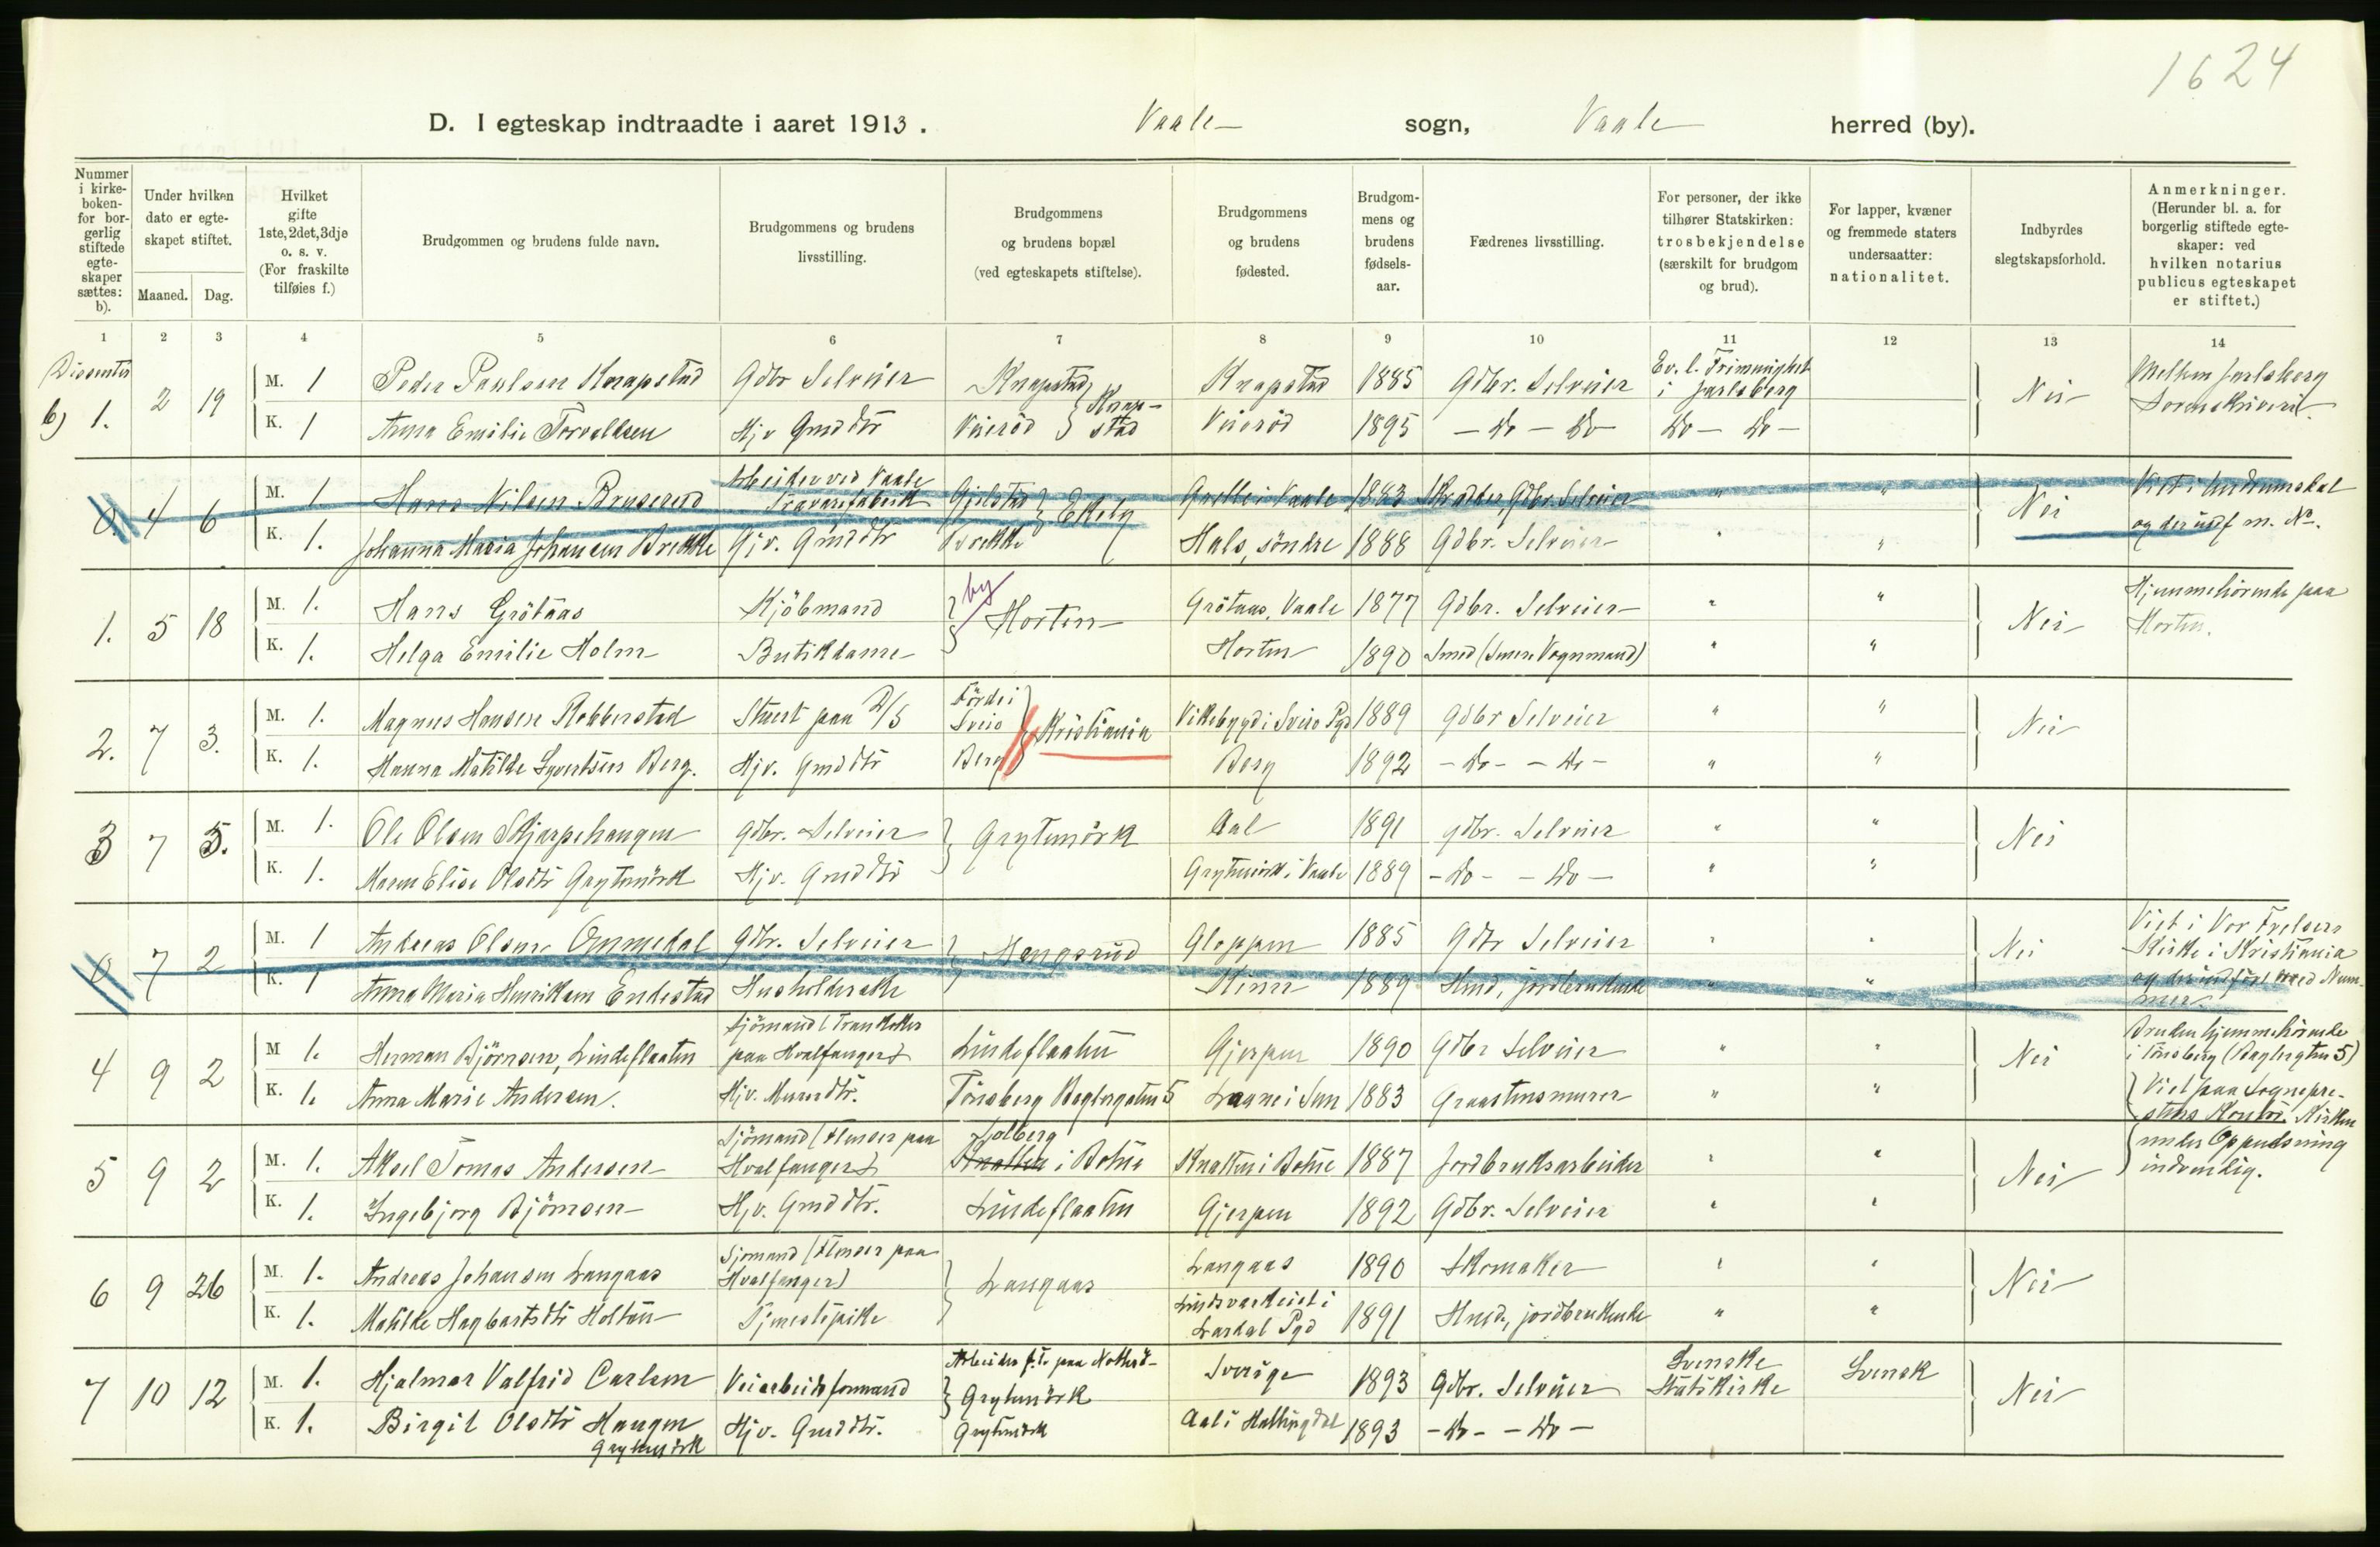 1624
D. I egteskap indtraadte i aaret 1913. Vaale sogn, Vaale herred (by).
Nummer i kirke- boken- for bor- gerlig stiftede egte- skaper sættes: b).
Under hvilken dato er egte- skapet stiftet.
Maaned. Dag.
Hvilket gifte 1ste, 2det, 3dje o. s. v. (For fraskilte tilføies f.)
Brudgommen og brudens fulde navn.
Brudgommens og brudens livsstilling.
Brudgommens og brudens bopæl (ved egteskapets stiftelse).
Brudgommens og brudens fødested.
Brudgom- mens og brudens fødsels- aar.
Fædrenes livsstilling.
For personer, der ikke tilhører Statskirken: trosbekjendelse (særskilt for brudgom og brud).
For lapper, kvæner og fremmede staters undersaatter: nationalitet.
Indbyrdes slegtskapsforhold.
Anmerkninger. (Herunder bl. a. for borgerlig stiftede egte- skaper: ved hvilken notarius publicus egteskapet er stiftet.)
1 2 3 4 5 6 7 8 9 10 11 12 13 14
Dissenter
b) 1. 2 19 M. 1 Peder Paulsen Knapstad Gdbr Selveier Knapstad Knapstad 1885 Gdbr. Selveier Ev. l. Frimenighet i Jarlsberg Nei Mellem Jarlsberg Sorenskriveri
K. 1 Anna Emilie Torvaldsen Hjv Grd dtr Viierød } Knap- stad Viierød 1895 - Do - Do Do - Do -
0. 4 6 M. 1 Hans Nilsen Bruserud Arbeider ved Vaale Travarefabrik Gjelstad } Ekely Grette i Vaale 1883 Skrædder Gdbr. Selveier " " Nei Viet i Andrumskal og der indf m. No.
K. 1. Johanna Maria Johansen Brekke Hjv. Grd dtr Brekke Hals, søndre 1888 Gdbr. Selveier " "
1. 5 18 M. 1. Hans Grötaas Kjöbmand } by Horten Grötaas, Vaale 1877 Gdbr. Selveier " " Nei Hjemmehörende paa Horten.
K. 1. Helga Emilie Holm Butikdame Horten 1890 Smed (Senere Vognmand) " "
2. 7 3. M. 1. Magnus Hansen Robberstad Stuert paa D/S Förde i Sveio } Kristiania Vikebygd i Sveio Pgd 1889 Gdbr Selveier " " Nei
K. 1. Hanna Matilde Syvertsen Berg. Hjv. Grd dtr Berg Berg 1892 - Do - - Do - " "
3 7 5. M. 1. Ole Olsen Skjarpehaugen Gdbr. Selveier } Grytemörk Aal 1891 Gdbr. Selveier " " Nei
K. 1. Maren Elise Olsdtr Grytemörk Hjv. Grd dtr Grytemörk i Vaale 1889 - Do - - Do - " "
0 7 2 M. 1 Andreas Olsen Ommedal Gdbr. Selveier } Hengsrud Gloppen 1885 Gdbr Selveier " " Nei Viet i Vor Frelsers Kirke i Kristiania og der indfört med Num- mer.
K. 1 Anna Maria Henriksen Endestad Husholderske Kinn 1889 Hmd, jordbrukende " "
4 9 2 M 1. Herman Björnsen, Lindeflaaten Sjömand (Trankoker paa Hvalfanger) Lindeflaaten Gjerpen 1890 Gdbr Selveier " " Nei Bruden hjemmehörende i Tönsberg (Baglergaten 5)
K. 1. Anna Marie Andersen. Hjv. Murerdtr. Tönsberg Baglergaten 5 Laane i Sem 1883 Graastensmurer " " Viet paa Sognepre- stens Kontor. Kirken
5 9 2 M. 1. Aksel Tomas Andersen Sjömand (Flenser paa Hvalfanger) Solberg Knatten i Botne Knatten i Botne 1887 Jordbruksarbeider " " Nei under Oppudsning indvendig.
K. 1. Ingebjorg Björnsen Hjv. Grd dtr. Lindeflaaten Gjerpen 1892 Gdbr. Selveier " "
6 9 26 M. 1. Andreas Johansen Langaas Sjomand (Flenser paa Hvalfanger) } Langaas Langaas 1890 Skomaker " " Nei
K. 1. Matilde Hagbartsdtr Holtan Tjenestepike Lardal Pgd 1891 Hmd, jordbrukende " "
7 10 12 M. 1. Hjalmar Valfrid Carlsen Veiarbeidsformand Arbeider f. T. paa Nötterö- } Grytemörk Sverige 1893 Gdbr. Selveier Svenske Statskirke Svensk Nei
K. 1. Birgit Olsdtr Haugen Grytemörk Hjv. Grd dtr. Grytemörk Aal i Hallingdal 1893 - Do - - Do -